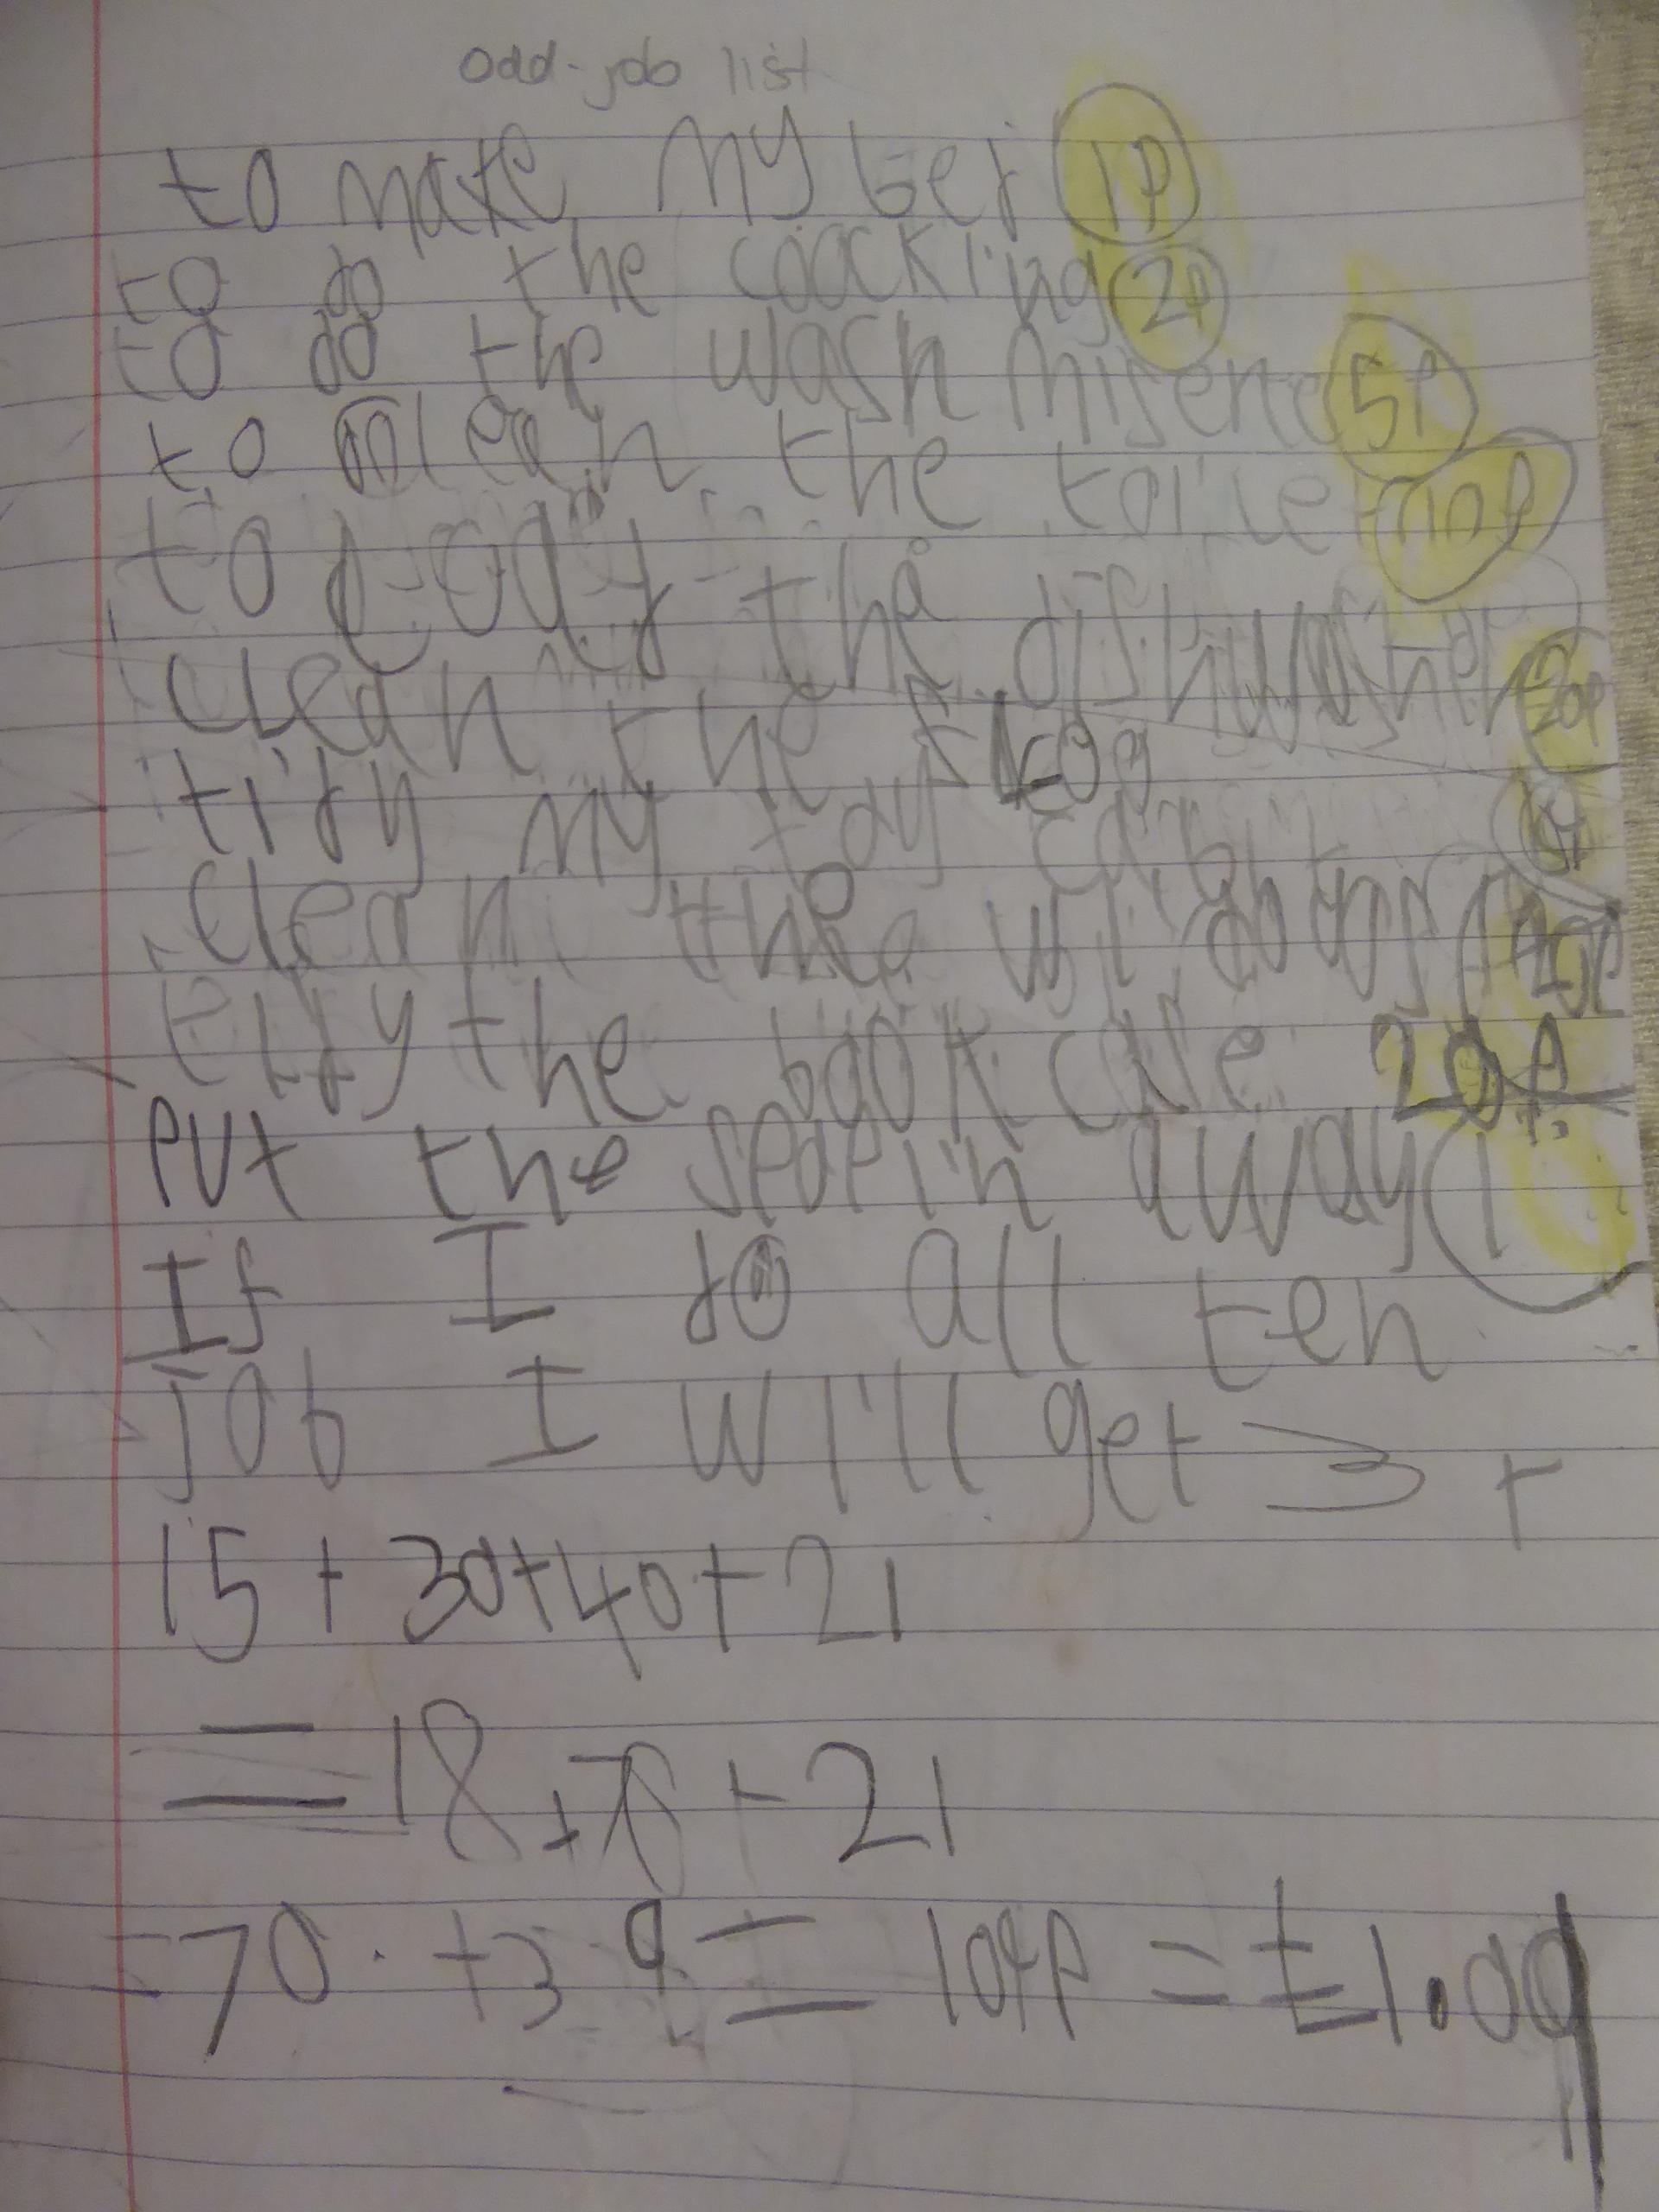 odd-job list
to make my bed 1p
to do the coocking 2p
to do the wash misene 5p
to clean the toilet 10p
to the dishwasher 20p
clean the
tidy my toy
clean the
tidy the book case 20p
put the away 1
If I do all ten
job I will get 3 +
15 + 30+40+21
=18+70+21
=70+39=109p=£1.09